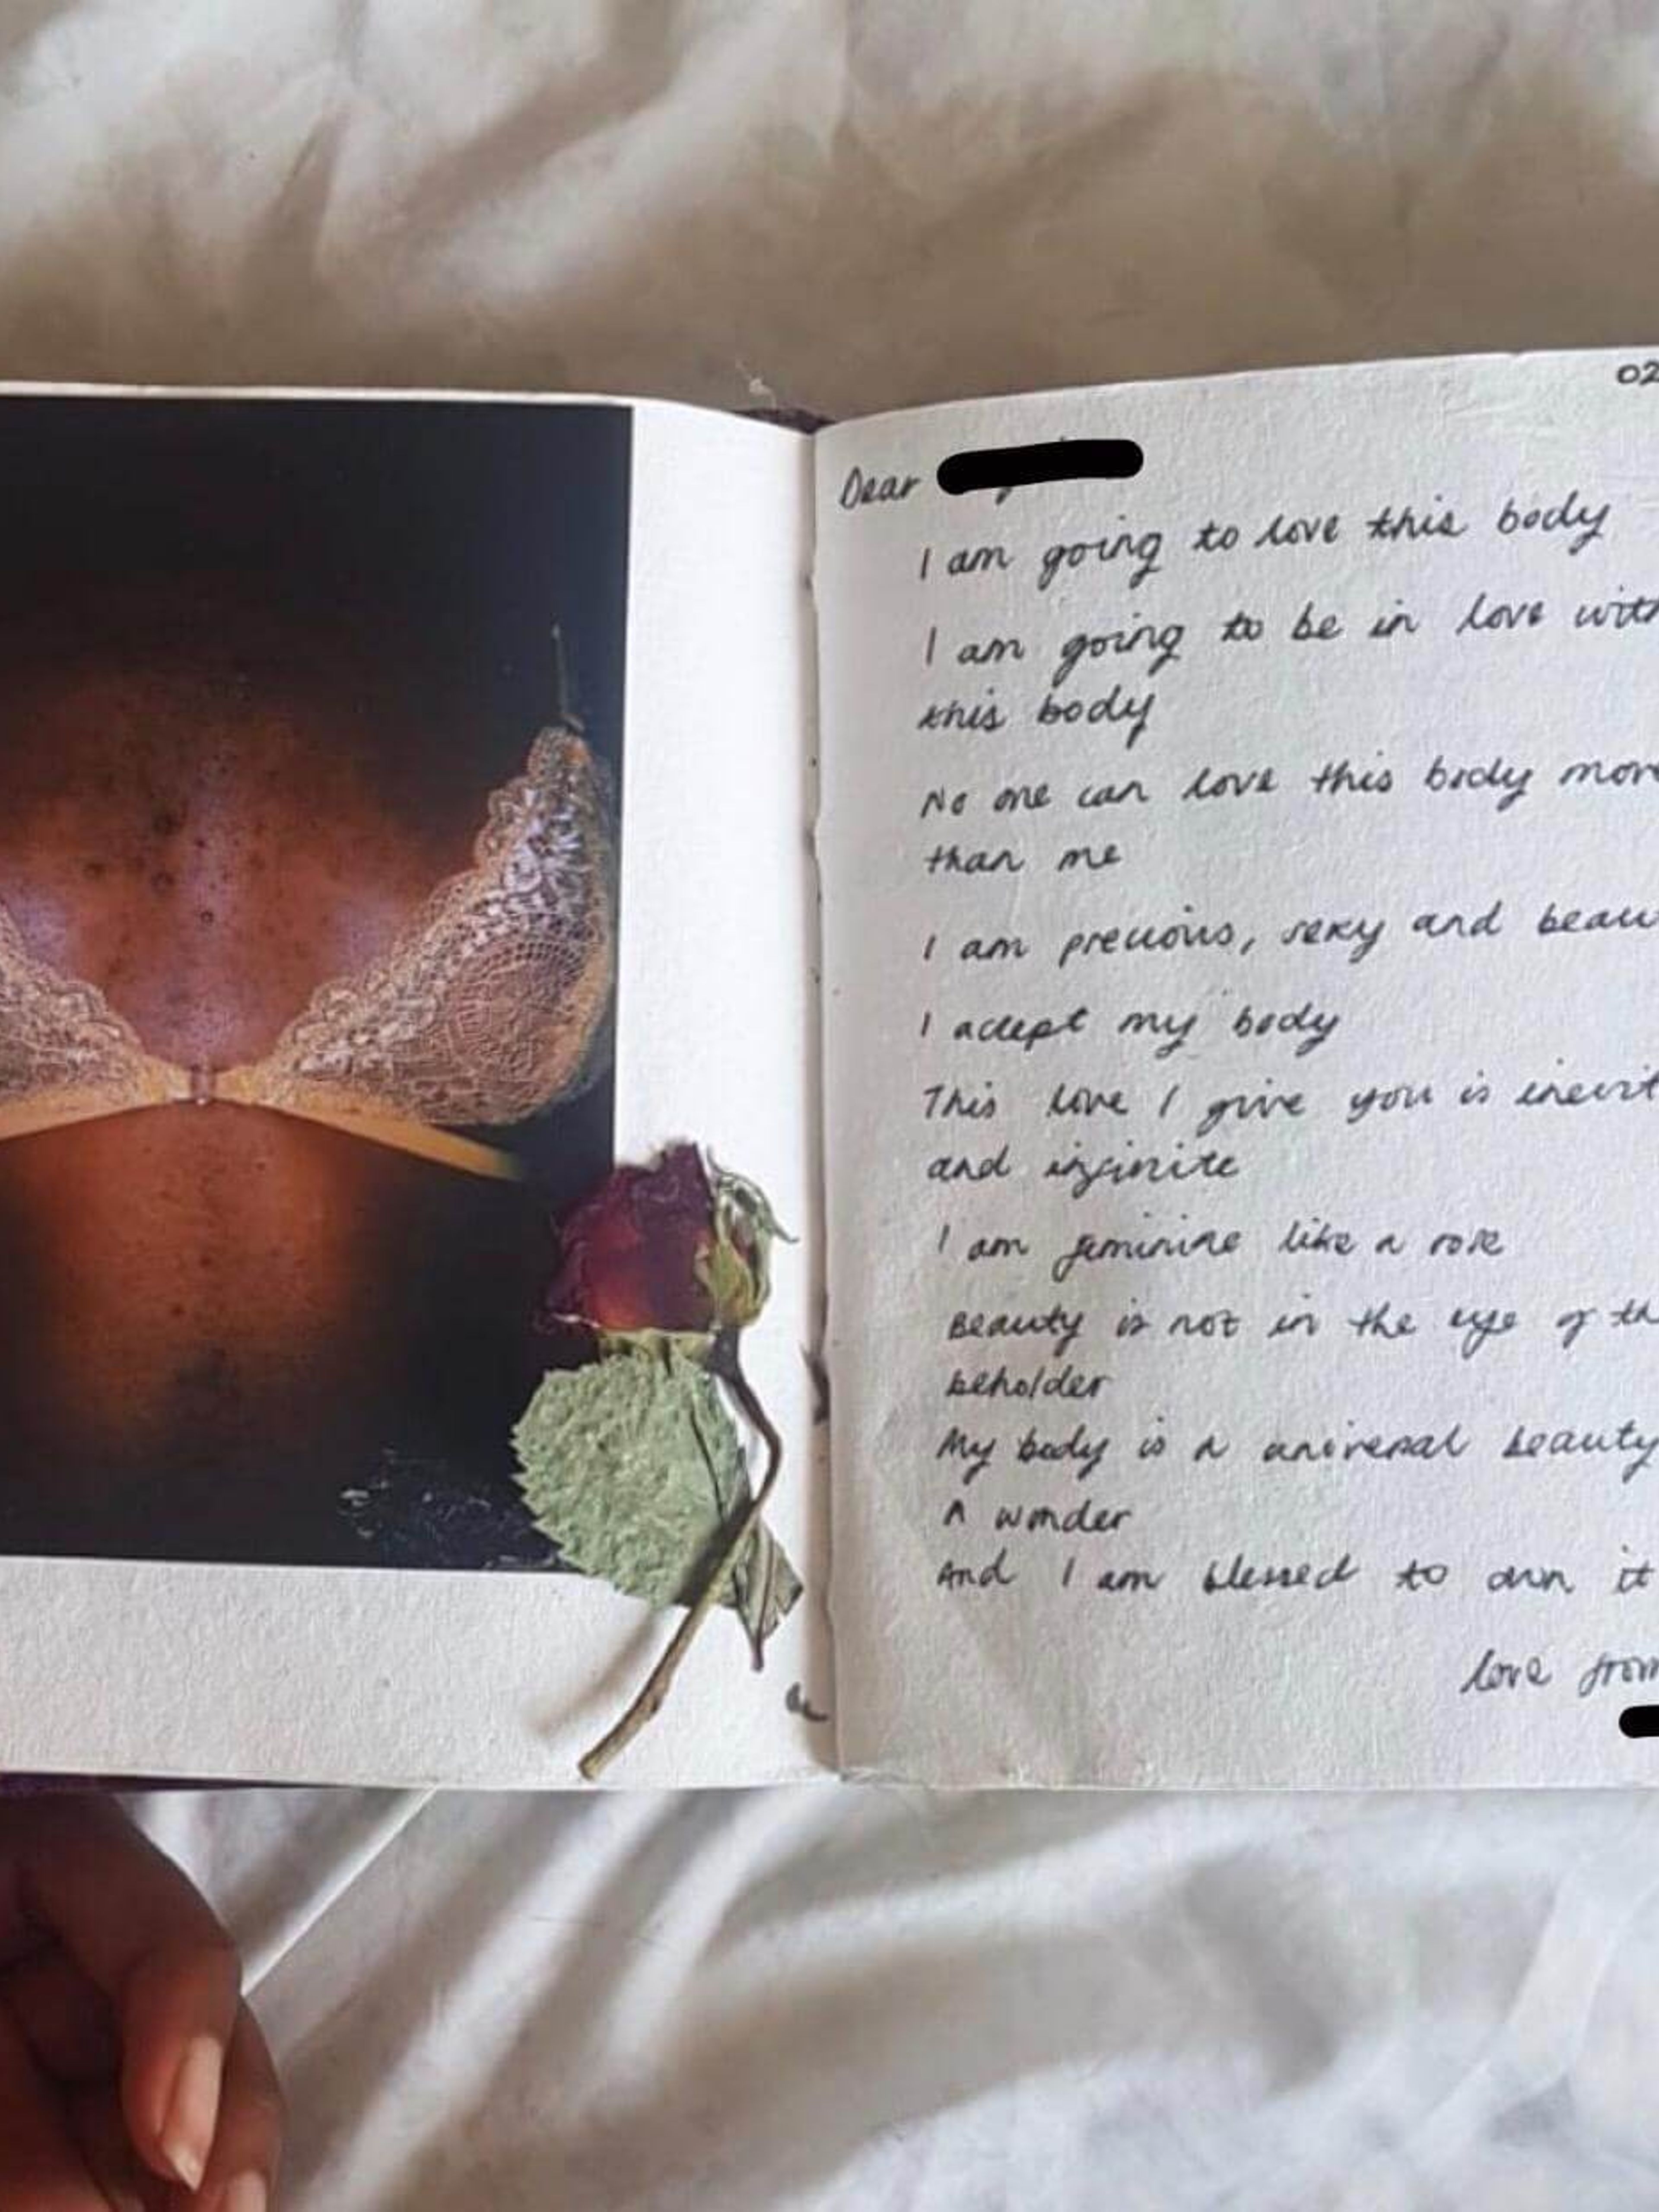 02
Dear
I am going to love this body
I am going to be in love with
this body
No one can love this body more
than me
I am precious, sexy and beau
I accept my body
This love I give you is inevit
and infinite
I am feminine like a rose
Beauty is not in the eye of th
beholder
My body is a universal beauty
A wonder
And I am blessed to own it
love from